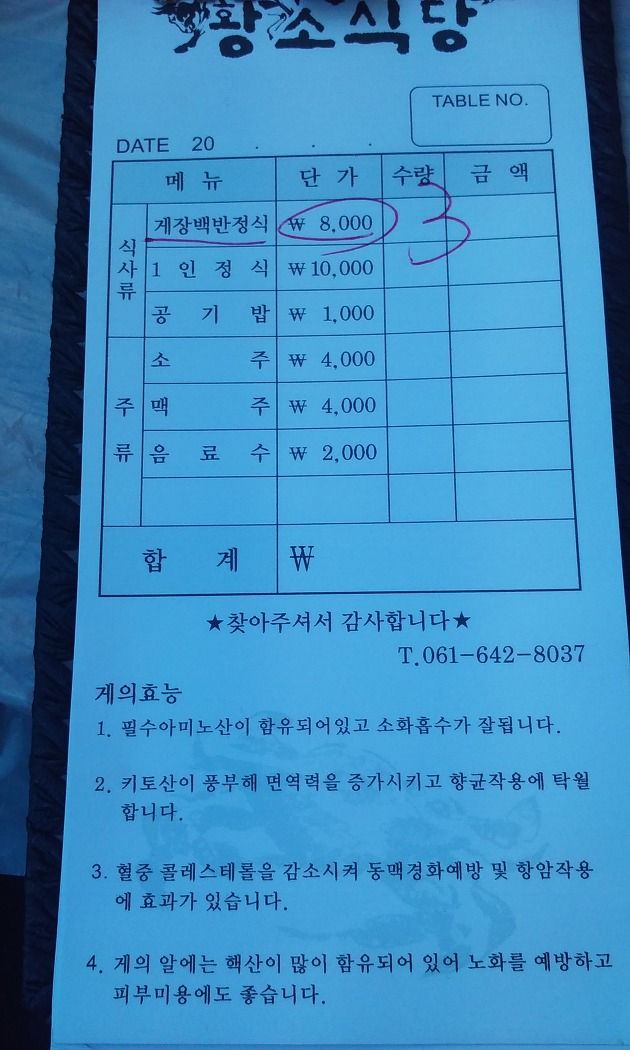 황소식당
TABLE NO.
DATE 20 . . .
메뉴 단가 수량 금액
식사류
게장백반정식 ₩ 8,000 3
1인정식 ₩ 10,000
공기밥 ₩ 1,000
주류
소주 ₩ 4,000
맥주 ₩ 4,000
음료수 ₩ 2,000
합계 ₩
★찾아주셔서 감사합니다★
T.061-642-8037
게의효능
1. 필수아미노산이 함유되어있고 소화흡수가 잘됩니다.
2. 키토산이 풍부해 면역력을 증가시키고 향균작용에 탁월
합니다.
3. 혈중 콜레스테롤을 감소시켜 동맥경화예방 및 항암작용
에 효과가 있습니다.
4. 게의 알에는 핵산이 많이 함유되어 있어 노화를 예방하고
피부미용에도 좋습니다.